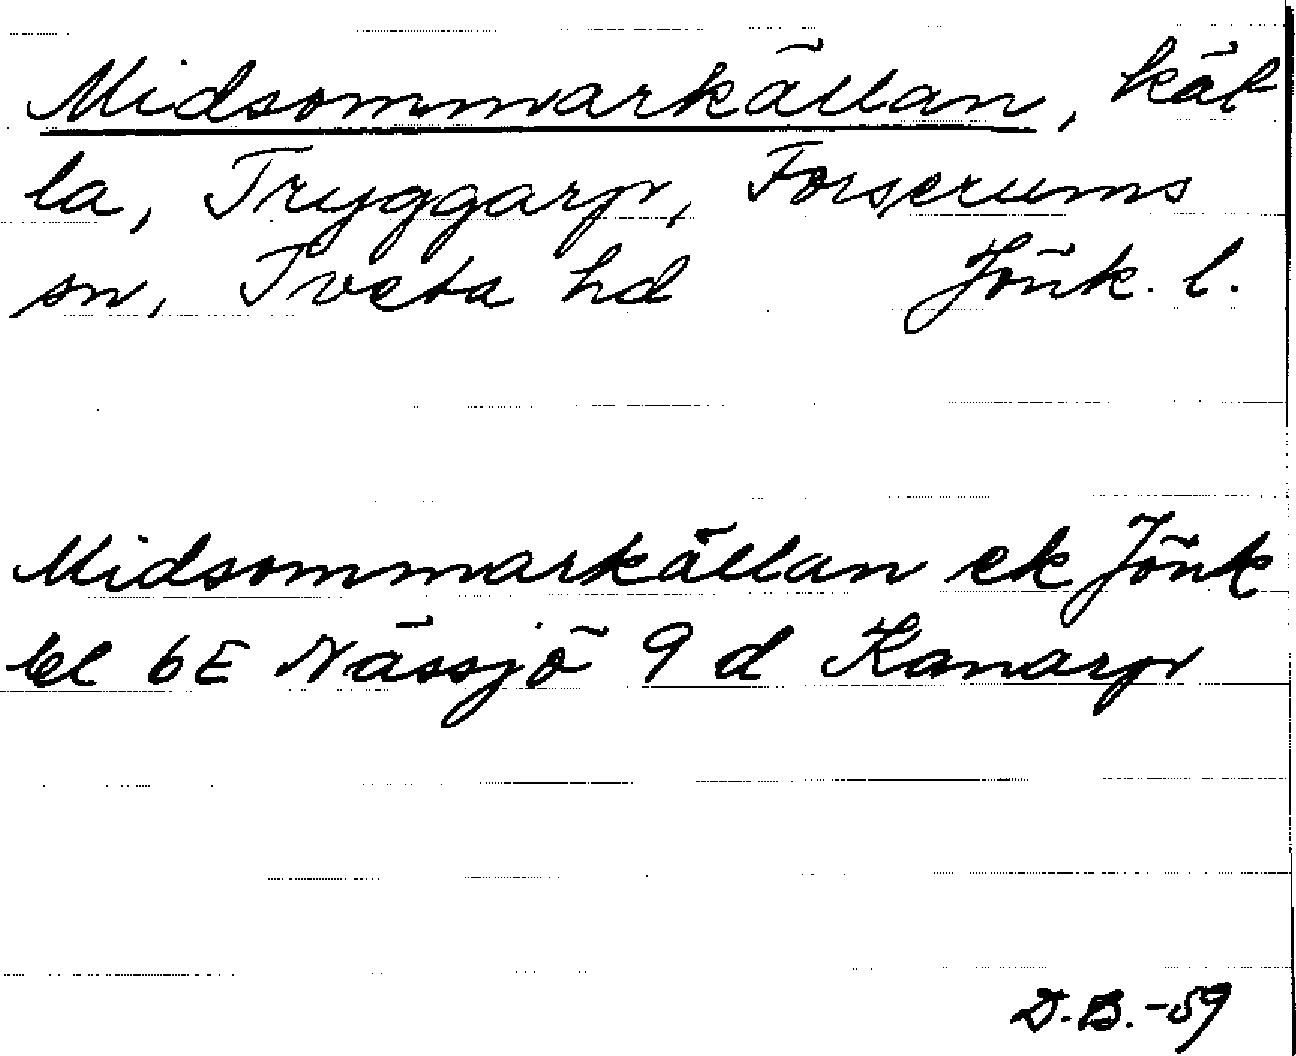 Midsommarkällan, käl-
la, Tryggarp, Forserums
sn, Tveta hd Jönk. l.
Midsommarkällan ek Jönk
bl 6E Nässjö 9 d Kanarp
D.B.-59